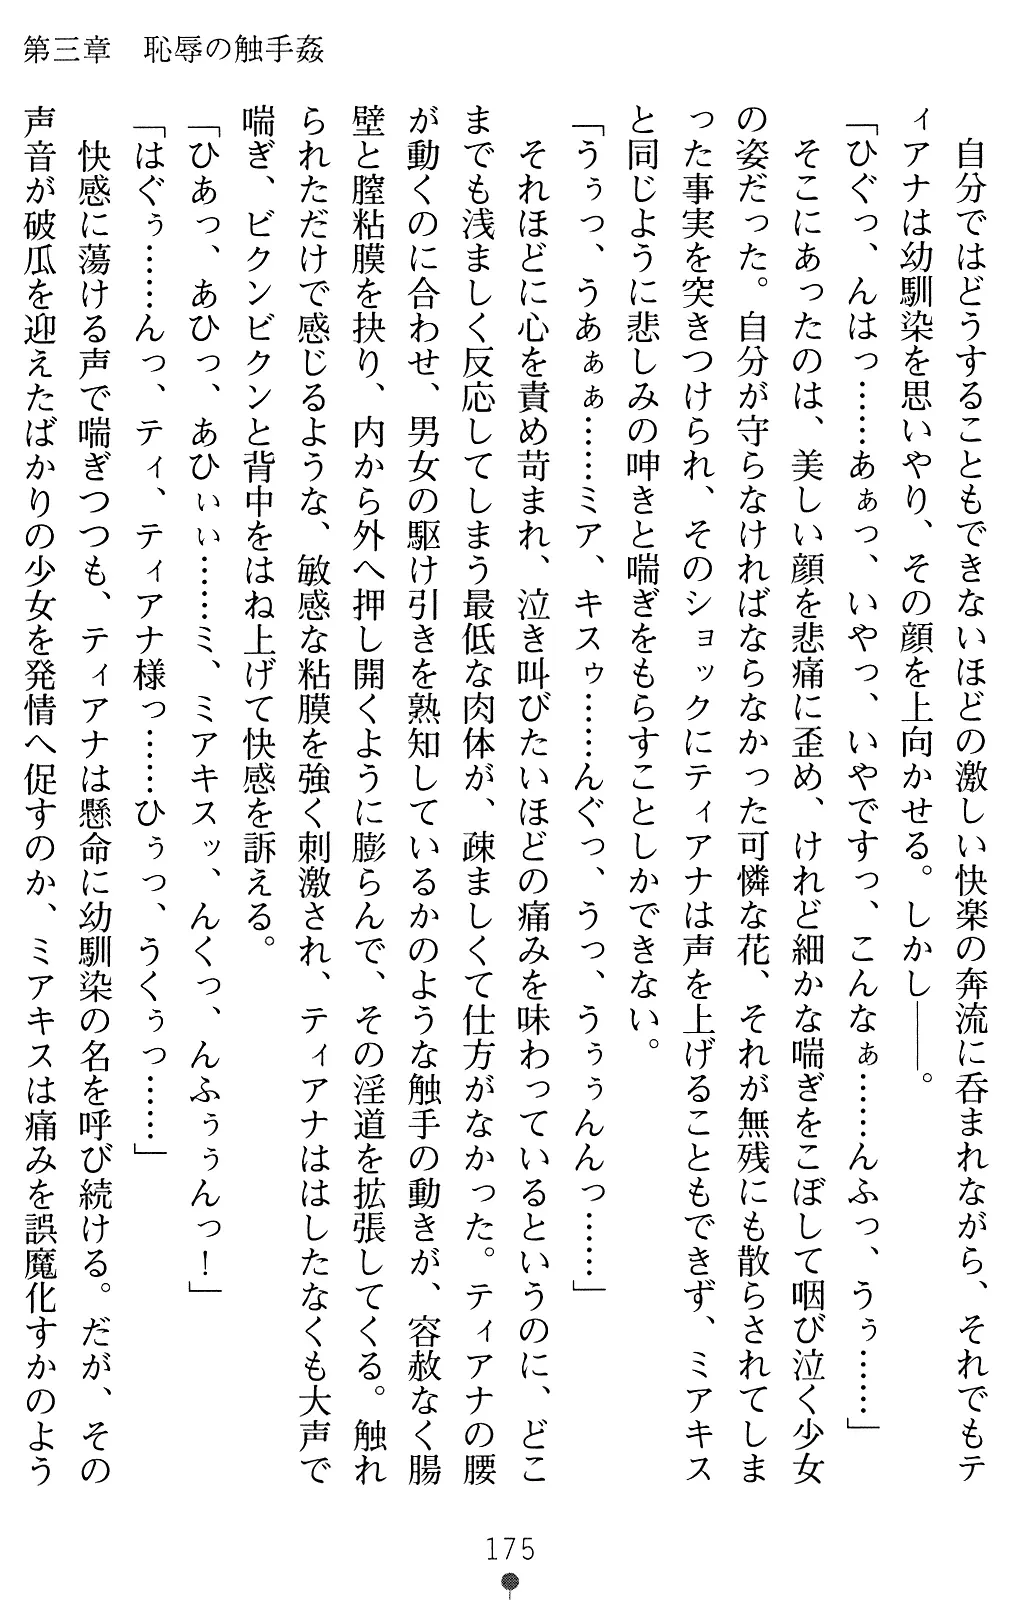 第三章　恥辱の触手姦
　自分ではどうすることもできないほどの激しい快楽の奔流に呑まれながら、それでもテ
ィアナは幼馴染を思いやり、その顔を上向かせる。しかし――。
「ひぐっ、んはっ……あぁっ、いやっ、いやですっ、こんなぁ……んふっ、うぅ……」
　そこにあったのは、美しい顔を悲痛に歪め、けれど細かな喘ぎをこぼして咽び泣く少女
の姿だった。自分が守らなければならなかった可憐な花、それが無残にも散らされてしま
った事実を突きつけられ、そのショックにティアナは声を上げることもできず、ミアキス
と同じように悲しみの呻きと喘ぎをもらすことしかできない。
「うぅっ、うあぁぁ……ミア、キスゥ……んぐっ、うっ、うぅぅんんっ……」
　それほどに心を責め苛まれ、泣き叫びたいほどの痛みを味わっているというのに、どこ
までも浅ましく反応してしまう最低な肉体が、疎ましくて仕方がなかった。ティアナの腰
が動くのに合わせ、男女の駆け引きを熟知しているかのような触手の動きが、容赦なく腸
壁と膣粘膜を抉り、内から外へ押し開くように膨らんで、その淫道を拡張してくる。触れ
られただけで感じるような、敏感な粘膜を強く刺激され、ティアナははしたなくも大声で
喘ぎ、ビクンビクンと背中をはね上げて快感を訴える。
「ひあっ、あひっ、あひぃぃ……ミ、ミアキスッ、んくっ、んふぅぅんっ！」
「はぐぅ……んっ、ティ、ティアナ様っ……ひぅっ、うくぅっ……」
　快感に蕩ける声で喘ぎつつも、ティアナは懸命に幼馴染の名を呼び続ける。だが、その
声音が破瓜を迎えたばかりの少女を発情へ促すのか、ミアキスは痛みを誤魔化すかのよう
175